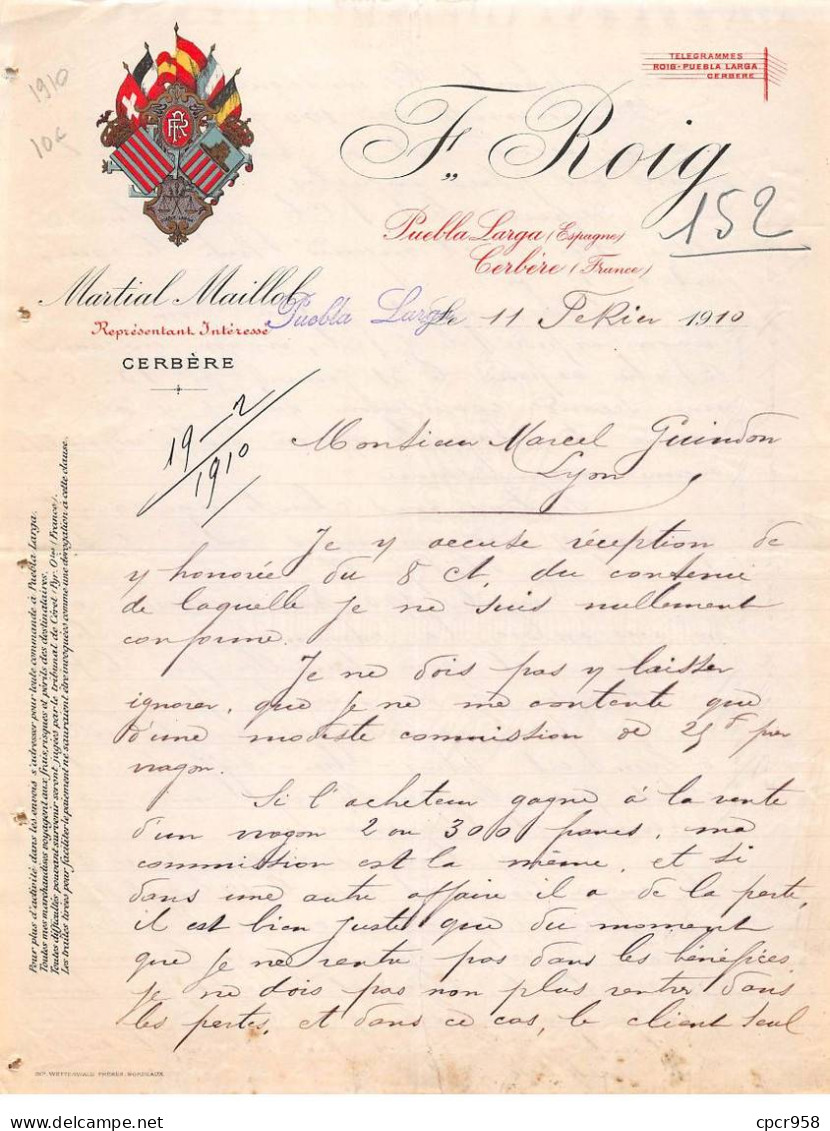 1910
10€
TELEGRAMMES
ROIG-PUEBLA LARGA
CERBERE
F. Roig
152
Puebla Larga (Espagne)
Cerbère (France)
Martial Maillol
Représentant Intéressé
CERBÈRE
Puebla Larga le 11 Fekier 1910
19-2
1910
Monsieur Marcel Guindon
Lyon
Je y accuse réception de
y honorée du 8 ct. du contenu
de laquelle je ne suis nullement
conforme.
Je ne dois pas y laisser
ignorer, que je ne me contente que
d'une modeste commission de 25 F per
wagon.
Si l'acheteur gagne à la vente
d'un wagon 2 ou 300 francs, ma
commission est la même, et si
dans une autre affaire il a de la perte,
il est bien juste que du moment
que je ne rentre pas dans les bénéfices
je ne dois pas non plus rentrer dans
les pertes, et dans ce cas, le client seul
Pour plus d'activité dans les envois s'adresser pour toute commande à Puebla Larga.
Toutes mes marchandises voyagent aux frais, risques et périls des destinataires.
Toutes difficultés pouvant survenir seront jugées par le tribunal de Céret (Pyr. Oles) (France).
Les traites tirées pour faciliter le paiement ne sauraient être invoquées comme une dérogation à cette clause.
IMP. WETTERWALD FRÈRES, BORDEAUX
cpcr958